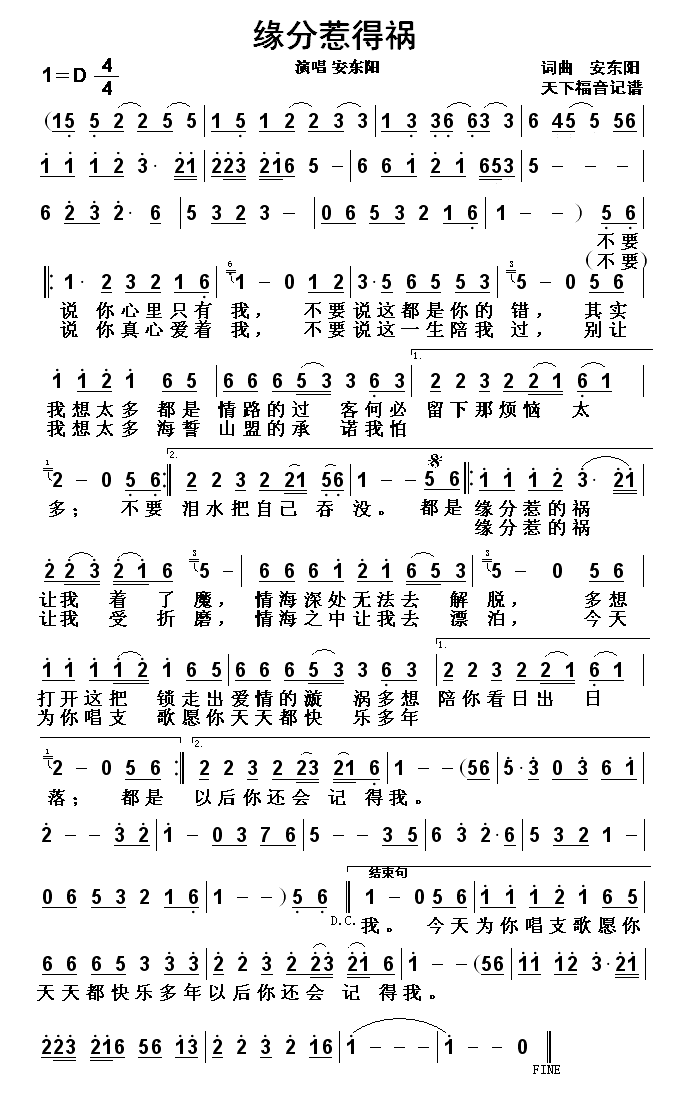 缘分惹得祸
1=D 4/4 演唱 安东阳 词曲 安东阳
天下福音记谱
(15 5 2 2 5 5 | 1 5 1 2 2 3 3 | 1 3 36 63 3 | 6 45 5 56
1 1 1 2 3· 21 | 223 216 5 - | 6 6 1 2 1 653 | 5 - - -
6 2 3 2· 6 | 5 3 2 3 - | 0 6 5 3 2 1 6 | 1 - - ) 5 6 |
不要
(不要)
‖: 1· 2 3 2 1 6 | 6 1 - 0 1 2 | 3·5 6 5 5 3 | 3 5 - 0 5 6 |
说 你心里只有 我， 不要说这都是你的 错， 其实
说 你真心爱着 我， 不要说这一生陪我 过， 别让
1 1 2 1 6 5 | 6 6 6 5 3 3 6 3 | 1. 2 2 3 2 2 1 6 1 |
我想太多 都是 情路的过 客何必 留下那烦恼 太
我想太多 海誓 山盟的承 诺我怕
1 2 - 0 5 6 :‖ 2. 2 2 3 2 21 56 | 1 - - 5 6 ‖: 1 1 1 2 3· 21 |
多； 不要 泪水把自己 吞 没。 都是 缘分惹的祸
缘分惹的祸
2 2 3 2 1 6 3 5 - | 6 6 6 1 2 1 6 5 3 | 3 5 - 0 5 6 |
让我 着 了 魔， 情海深处无法去 解 脱， 多想
让我 受 折 磨， 情海之中让我去 漂 泊， 今天
1 1 1 1 2 1 6 5 | 6 6 6 5 3 3 6 3 | 1. 2 2 3 2 2 1 6 1 |
打开这把 锁走出爱情的漩 涡多想 陪你看日出 日
为你唱支 歌愿你天天都快 乐多年
1 2 - 0 5 6 :‖ 2. 2 2 3 2 23 21 6 | 1 - - (56 | 5·3 0 3 6 1 |
落； 都是 以后你还会 记 得我。
2 - - 3 2 | 1 - 0 3 7 6 | 5 - - 3 5 | 6 3 2·6 | 5 - - -
0 6 5 3 2 1 6 | 1 - - ) 5 6 ‖ 结束句 1 - 0 5 6 | 1 1 1 2 1 6 5 |
D.C. 我。 今天为你唱支歌愿你
6 6 6 5 3 3 3 3 | 2 2 3 2 23 21 6 | 1 - - (56 | 11 12 3·21 |
天天都快乐多年以后你还会 记 得我。
223 216 56 13 | 2 3 2 2 16 | 1 - - - | 1 - - 0 ‖
FINE